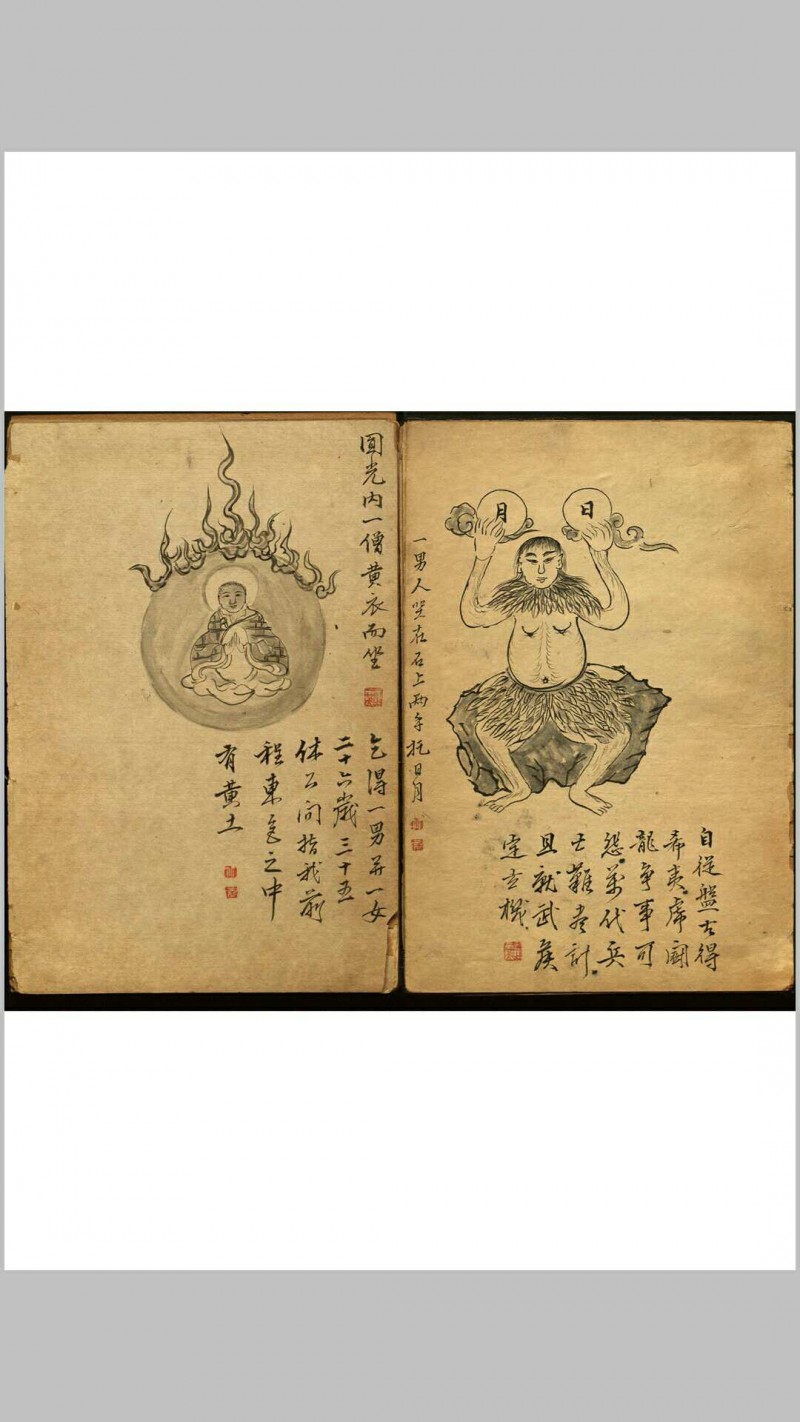 日
月
一男人坐在石上兩手托日月
自從盤古得
希夷虎鬪
龍爭事可
悲萬代兴
亡難盡計
且就武侯
定玄機
圓光内一僧黄衣而坐
乞得一男并一女
二十六歲三十五
体公問指我前
程東邑之中
有黄土